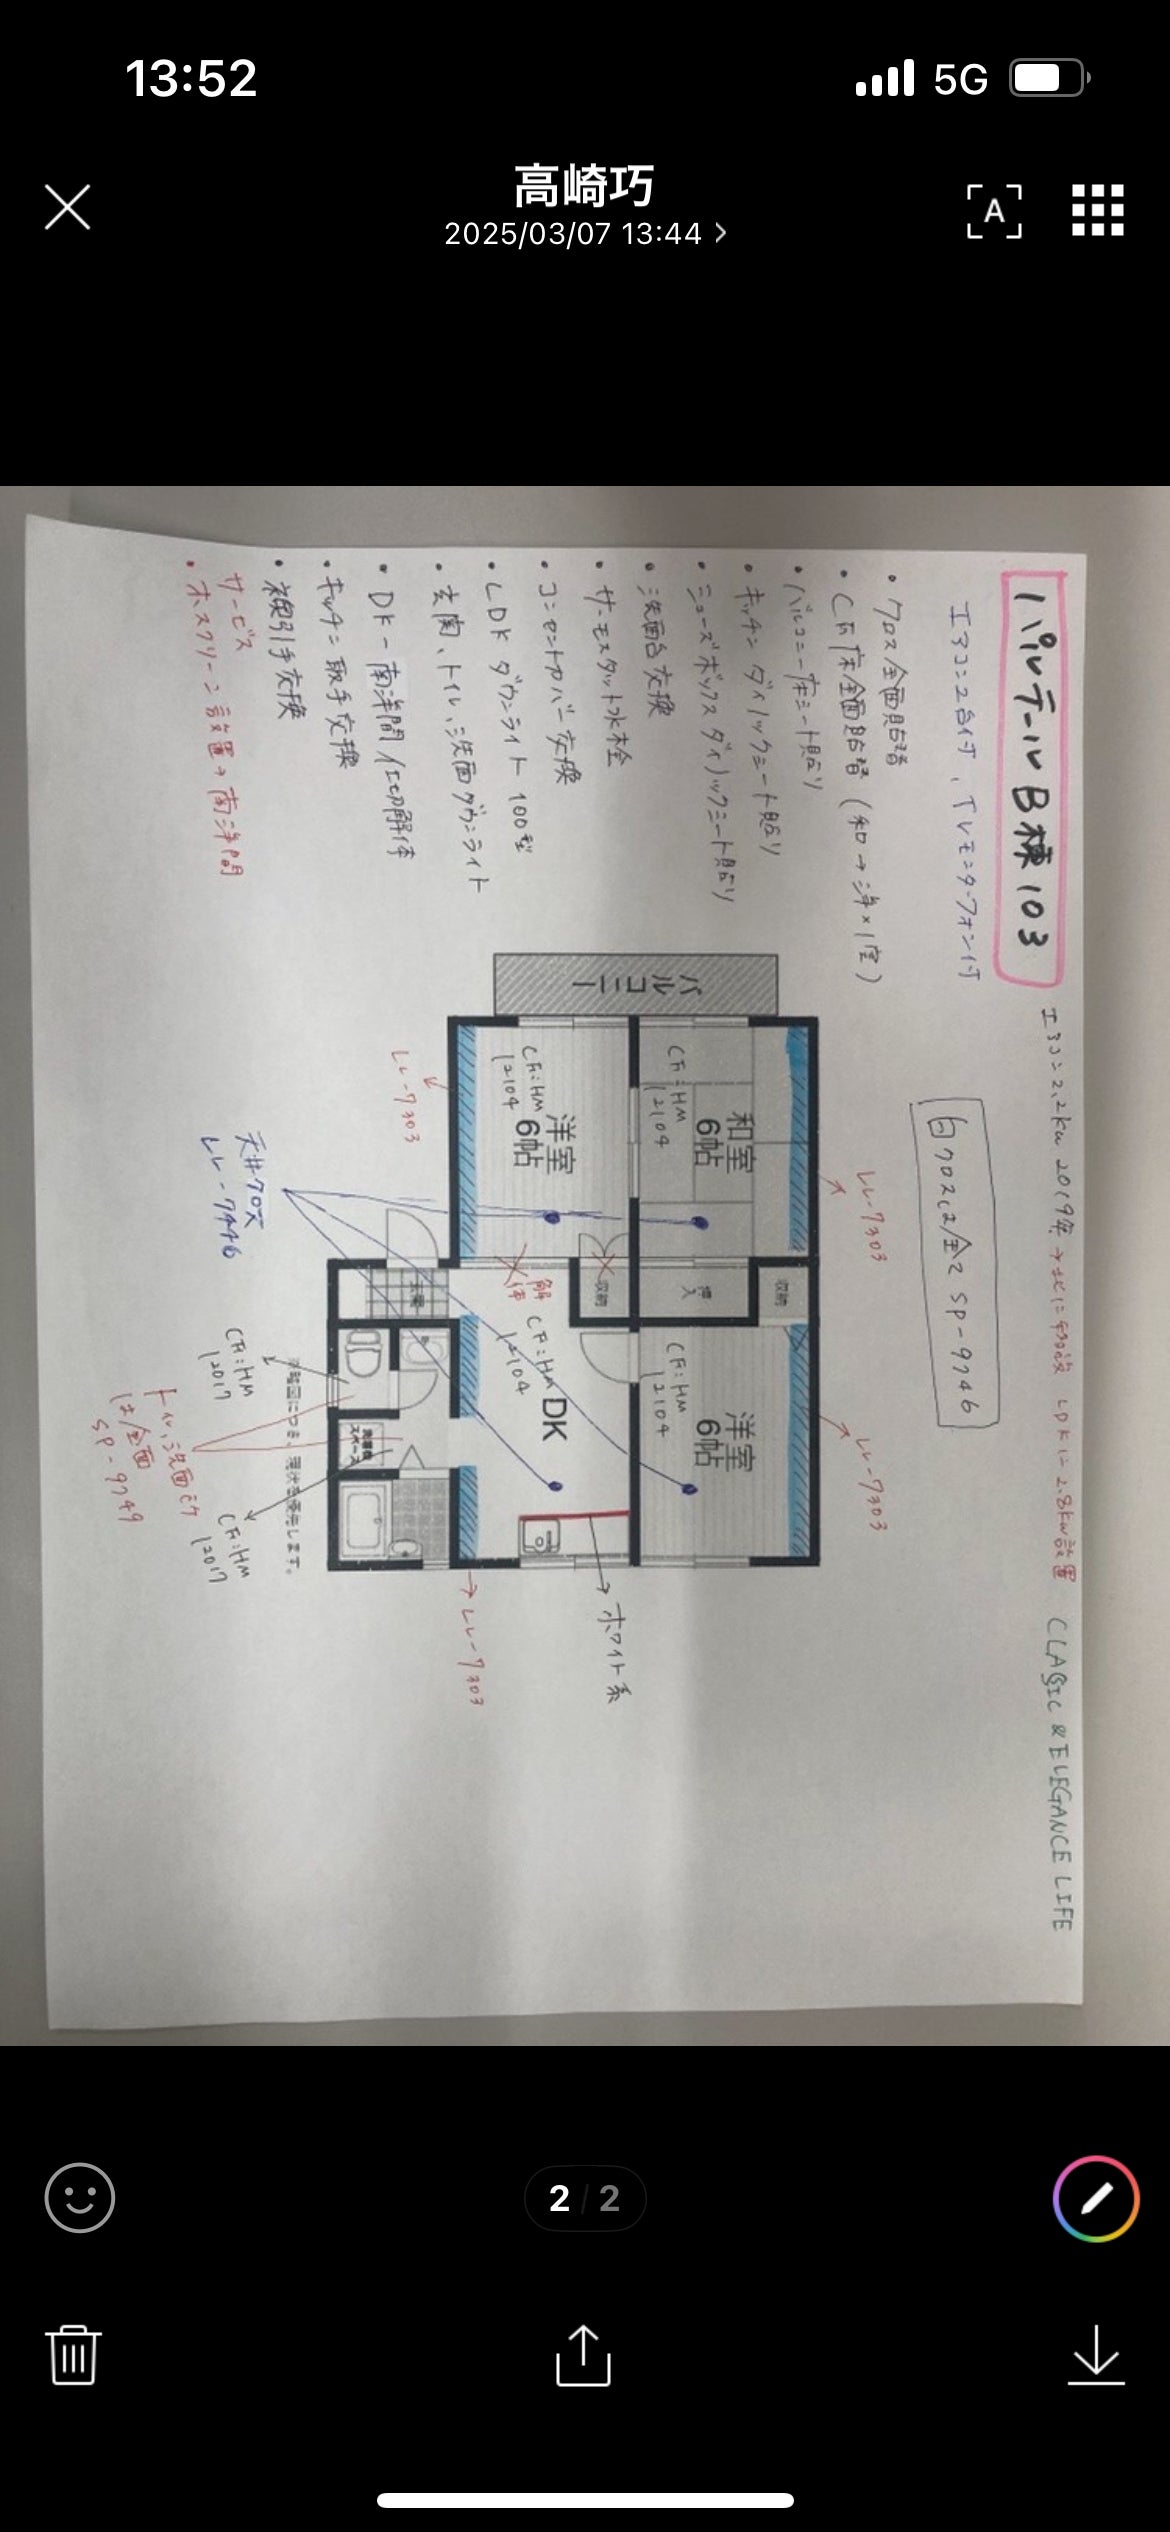 13:52
5G
高崎巧
2025/03/07 13:44
A
パルテールB棟103
エアコン2台付、TVモニターフォン付
エアコン2.2kw 2019年→北に移設 LDKに2.8kw設置
CLASSIC & ELEGANCE LIFE
白クロスは全てSP-9746
・クロス全面貼替
・CF床全面貼替(和→洋×1室)
・バルコニー床シート貼り
・キッチンダイノックシート貼り
・シューズボックスダイノックシート貼り
・洗面台交換
・サーモスタット水栓
・コンセントカバー交換
・LDKダウンライト100型
・玄関、トイレ、洗面ダウンライト
・DK-南洋間仕切解体
・キッチン取手交換
・襖引手交換
サービス
・ホスクリーン設置→南洋間
バルコニー
和室
6帖
CF:HM
12104
LL-7303
洋室
6帖
CF:HM
12104
LL-7303
収納
押入
収納
解体
玄関
洋室
6帖
CF:HM
12104
LL-7303
DK
CF:HM
12104
LL-7303
ホワイト系
天井クロス
LL-7446
洗濯機
スペース
CF:HM
12017
CF:HM
12017
トイレ、洗面だけ
は全面
SP-9749
※略図につき、現状を優先します。
2 / 2